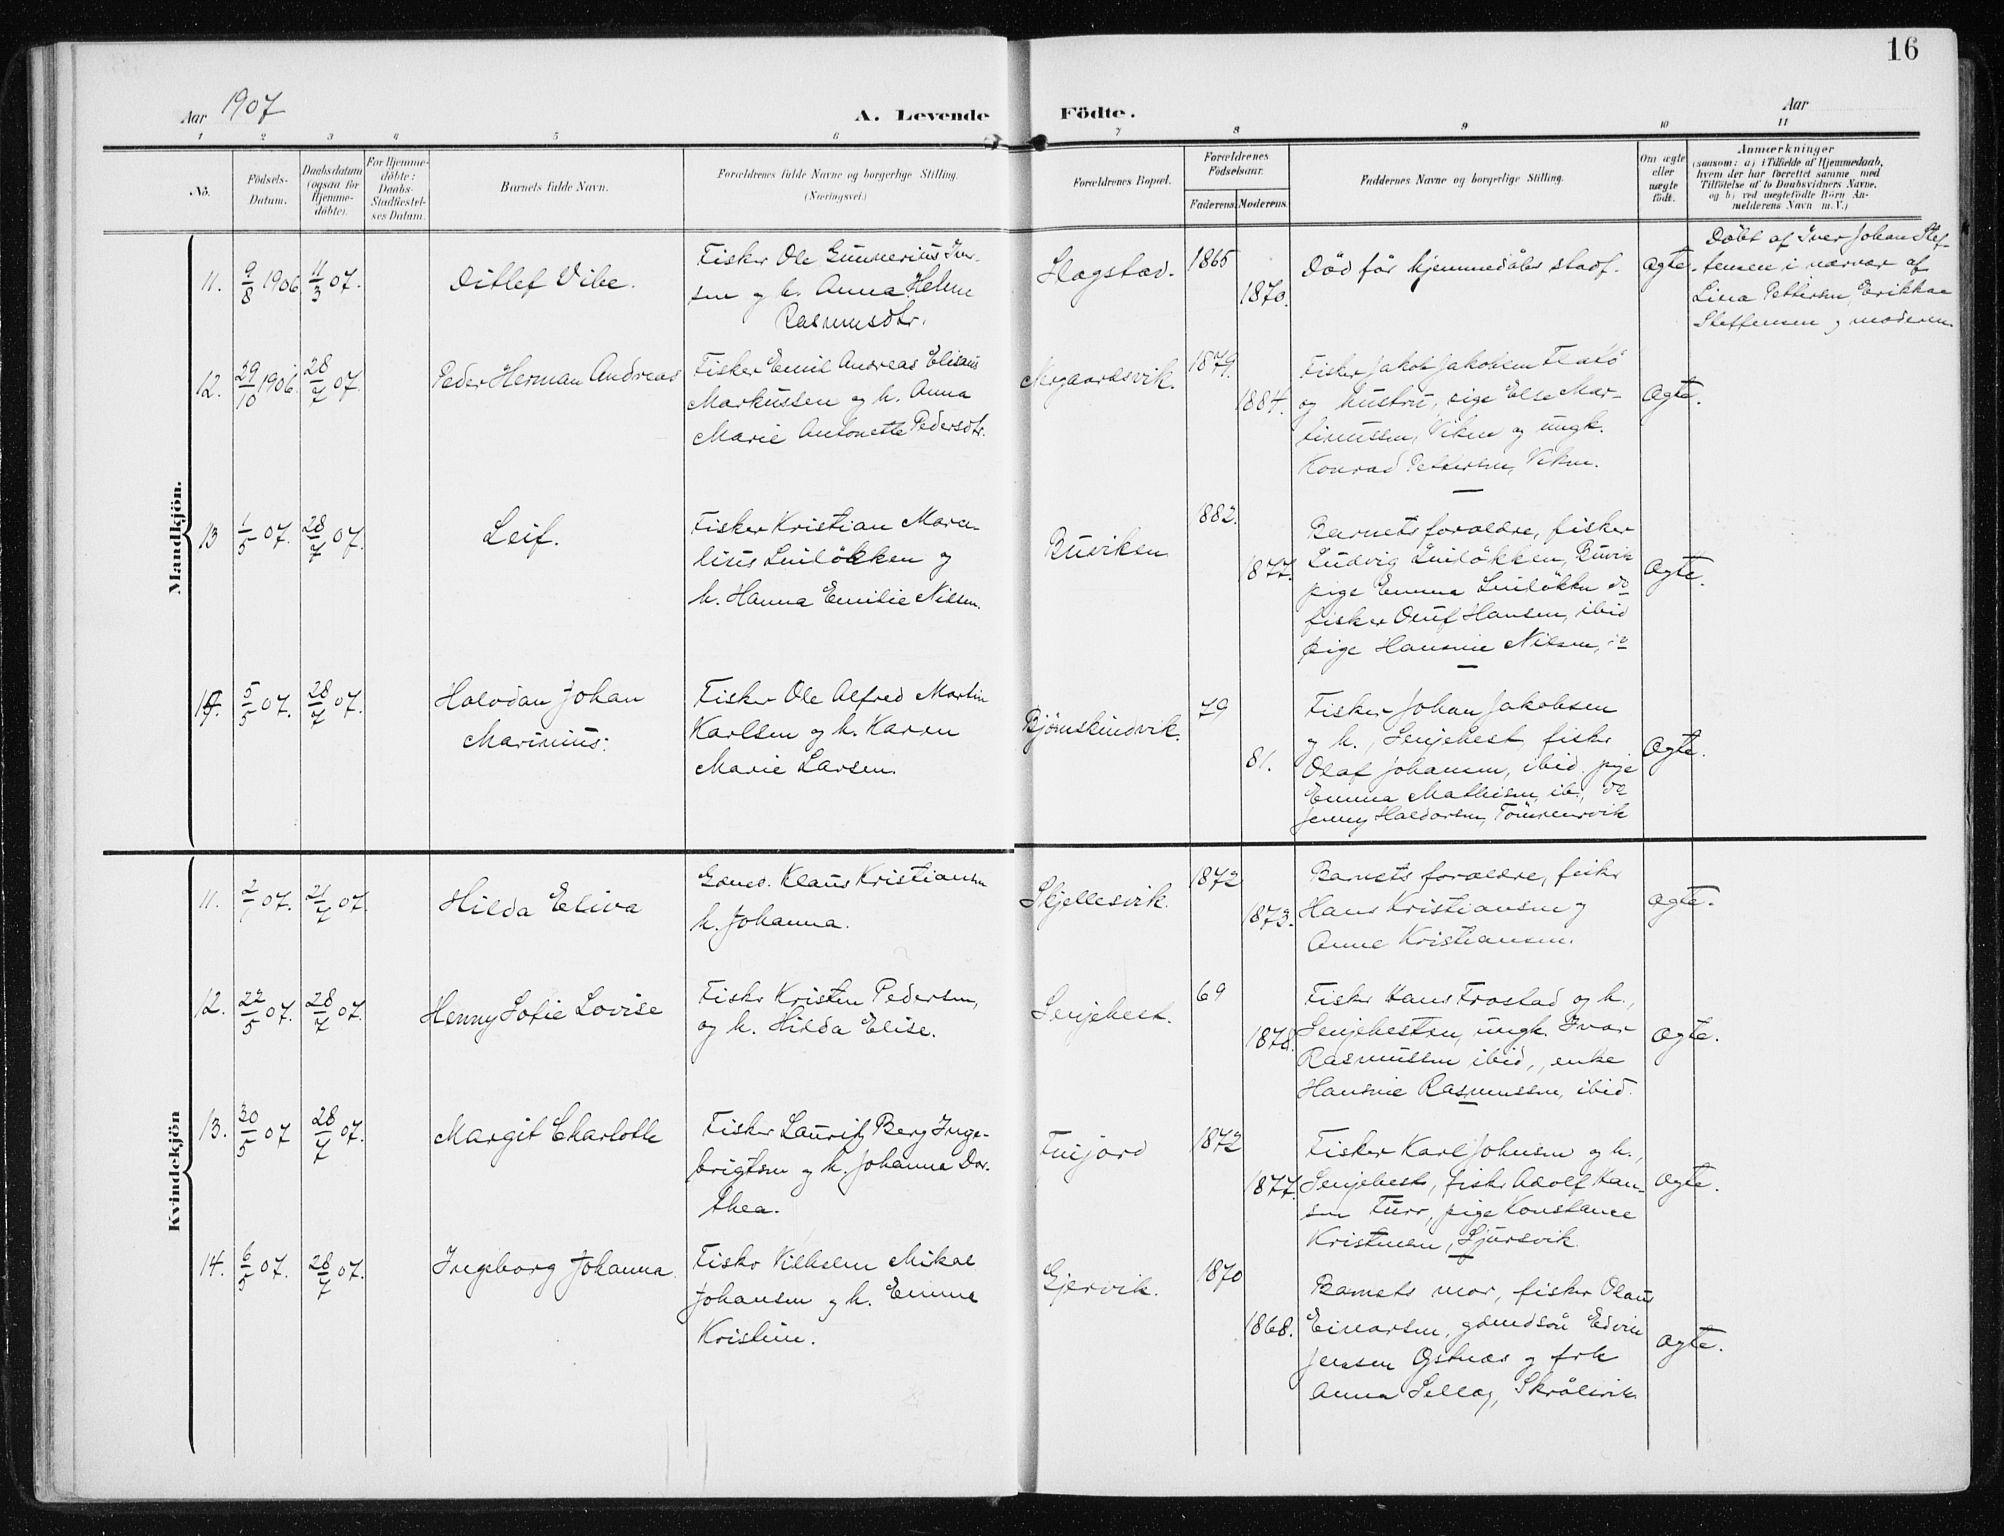 16
Aar 1907
A. Levende Födte.
Aar
1 2 3 4 5 6 7 8 9 10 11
No.
Födsels-
Datum.
Daabsdatum
(ogsaa for
Hjemme-
döbte).
For Hjemme-
döbte:
Daabs-
Stadfæstel-
ses Datum.
Barnets fulde Navn.
Forældrenes fulde Navne og borgerlige Stilling.
(Næringsvei.)
Forældrenes Bopæl.
Forældrenes
Födselsaar.
Faderens. Moderens.
Faddernes Navne og borgerlige Stilling.
Om ægte
eller
uægte
födt.
Anmærkninger
(saasom: a) i Tilfælde af Hjemmedaab,
hvem der har forrettet samme med
Tilföielse af to Daabsvidners Navne,
og b) ved uægtefödte Börn An-
melderens Navn m. V.)
Mandkjön.
11. 9/8 1906. 11/3 07.
Ditlef Vibe.
Fisker Ole Gunnerius Iver-
sen og h. Anna Helene
Rasmusdtr.
1865
1870.
Död för hjemmedåbs stadf.
ægte.
Döbt af Iver Johan Stef-
fensen i nærvær af
Lina Pettersen, Erikka
Steffensen og moderen.
12. 29/10 1906. 28/7 07.
Peder Herman Andreas
Fisker Emil Andreas Elisæus
Markussen og h. Anna
Marie Antonette Pedersdtr.
1879.
1884.
Fisker Jakob Jakobsen Flatö
og hustru, pige Else Mar-
tinussen, Viken og ungk.
Konrad Pettersen, Viken.
ægte.
13 1/5 07. 28/7 07.
Leif.
Fisker Kristian Marce-
lius Lniløkken og
h. Hanna Emilie Nilsen.
Buviken
882.
1877.
Barnets forældre, fisker
Ludvig Buvik
pige Emma do
fisker Oluf Hansen, ibid
pige Hansine Nilsen, do
ægte.
14. 5/5 07. 28/7 07.
Halvdan Johan
Marinius.
Fisker Ole Alfred Martin
Karlsen og h. Karen
Marie Larsen.
Bjørnskindvik.
79
81.
Fisker Johan Jakobsen
og h., Senjehest, fisker
Olaf Johansen, ibid. pige
Emma Mathisen, ib., do
Jenny Haldorsen, Tömmervik
ægte.
Kvindekjön
11. 2/1 07. 21/7 07.
Hilda Eliva
Gdmd. Klaus Kristiansen
h. Johanna.
Skjellesvik.
1872
1873.
Barnets forældre, fisker
Hans Kristiansen og
Anne Kristiansen.
ægte.
12. 22/5 07. 28/7 07.
Henny Sofie Lovise
Fisker Kristen Pedersen,
og h. Hilda Elise.
Senjehest.
69
1878.
Fisker Hans Frostad og h.,
Senjehesten, ungk. Ivar
Rasmussen ibid., enke
Hansine Rasmussen, ibid.
ægte.
13. 30/5 07 28/7 07.
Margit Charlotte
Fisker Lauritz Berg Inge-
brigtsen og h. Johanna Dor-
thea.
Finjord
1872
1877.
Fisker Karl Johnsen og h.,
Senjehest, fisker Adolf Han-
sen Furr, pige Konstance
Kristensen,
ægte.
14. 6/5 07. 28/7 07.
Ingeborg Johanna.
Fisker Vilhelm Mikal
Johansen og h. Emma
Kristine.
Gjervik.
1870
1868.
Barnets mor, fisker Olaus
Einarsen, gdmdsön Edvin
Jensen Ostnæs og frk
Anna Skrålivik.
ægte.